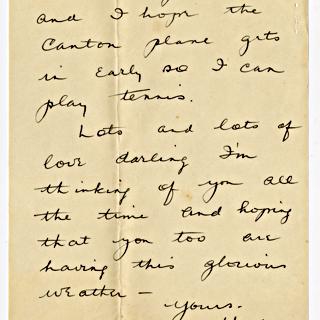 and I hope the
Canton plane gets
in early so I can
play tennis.
Lots and lots of
love darling I'm
thinking of you all
the time and hoping
that you too are
having this glorious
weather —
yours.